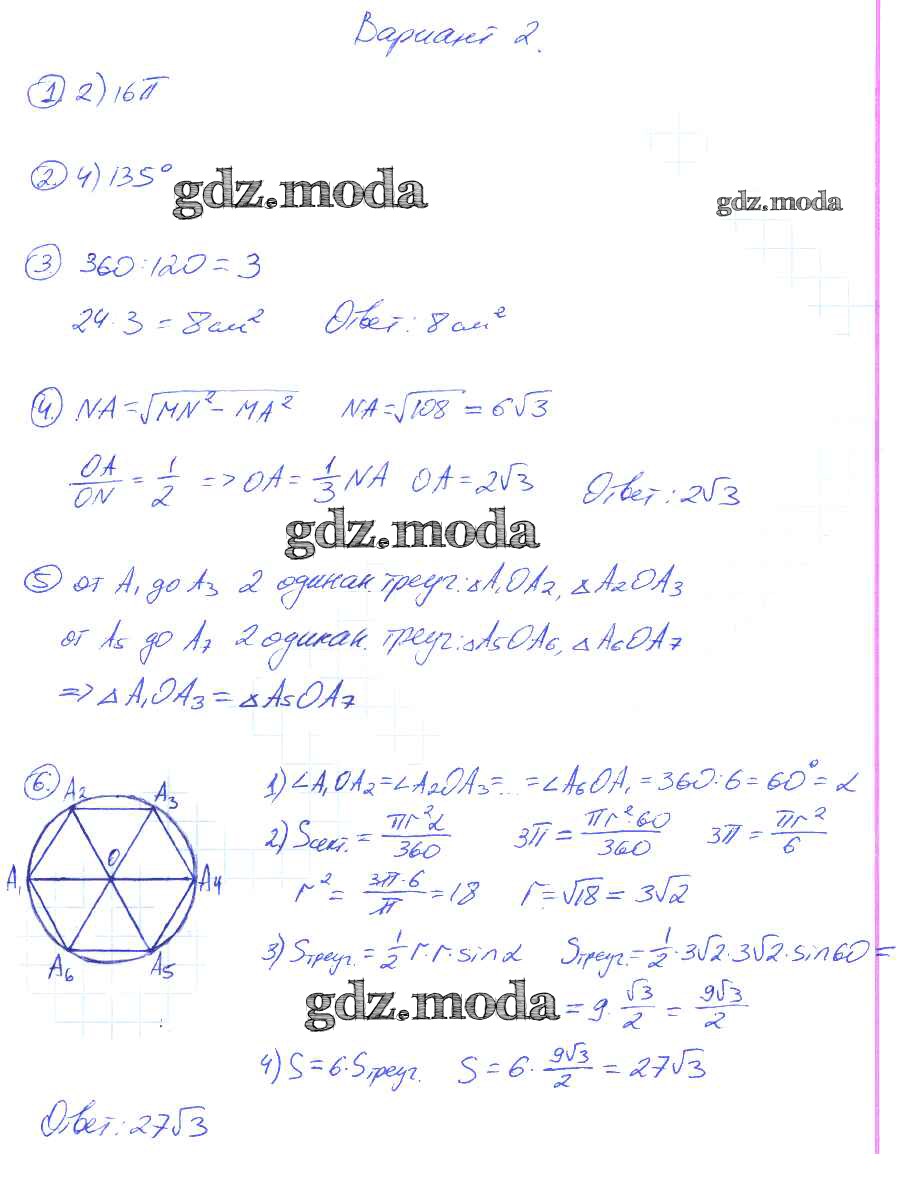 Вариант 2.
1 2) 16π
2. 4) 135°
gdz.moda
gdz.moda
3 360 : 120 = 3
24 · 3 = 8 см² Ответ: 8 см²
4. NA = √MN² - MA² NA = √108 = 6√3
OA/ON = 1/2 => OA = 1/3 NA OA = 2√3 Ответ: 2√3
gdz.moda
5 от A₁ до A₃ 2 одинак. треуг: △A₁OA₂, △A₂OA₃
от A₅ до A₇ 2 одинак. треуг: △A₅OA₆, △A₆OA₇
=> △A₁OA₃ = △A₅OA₇
6. 1) ∠A₁OA₂ = ∠A₂OA₃ = ... = ∠A₆OA₁ = 360 : 6 = 60° = α
A₂ A₃
2) Sсект. = πr²α/360 3π = πr²·60/360 3π = πr²/6
O
A₁ A₄
r² = 3π·6/π = 18 r = √18 = 3√2
A₆ A₅
3) Sтреуг. = 1/2 r · r · sin α Sтреуг. = 1/2 · 3√2 · 3√2 · sin 60 =
gdz.moda
= 9 · √3/2 = 9√3/2
4) S = 6 · Sтреуг. S = 6 · 9√3/2 = 27√3
Ответ: 27√3